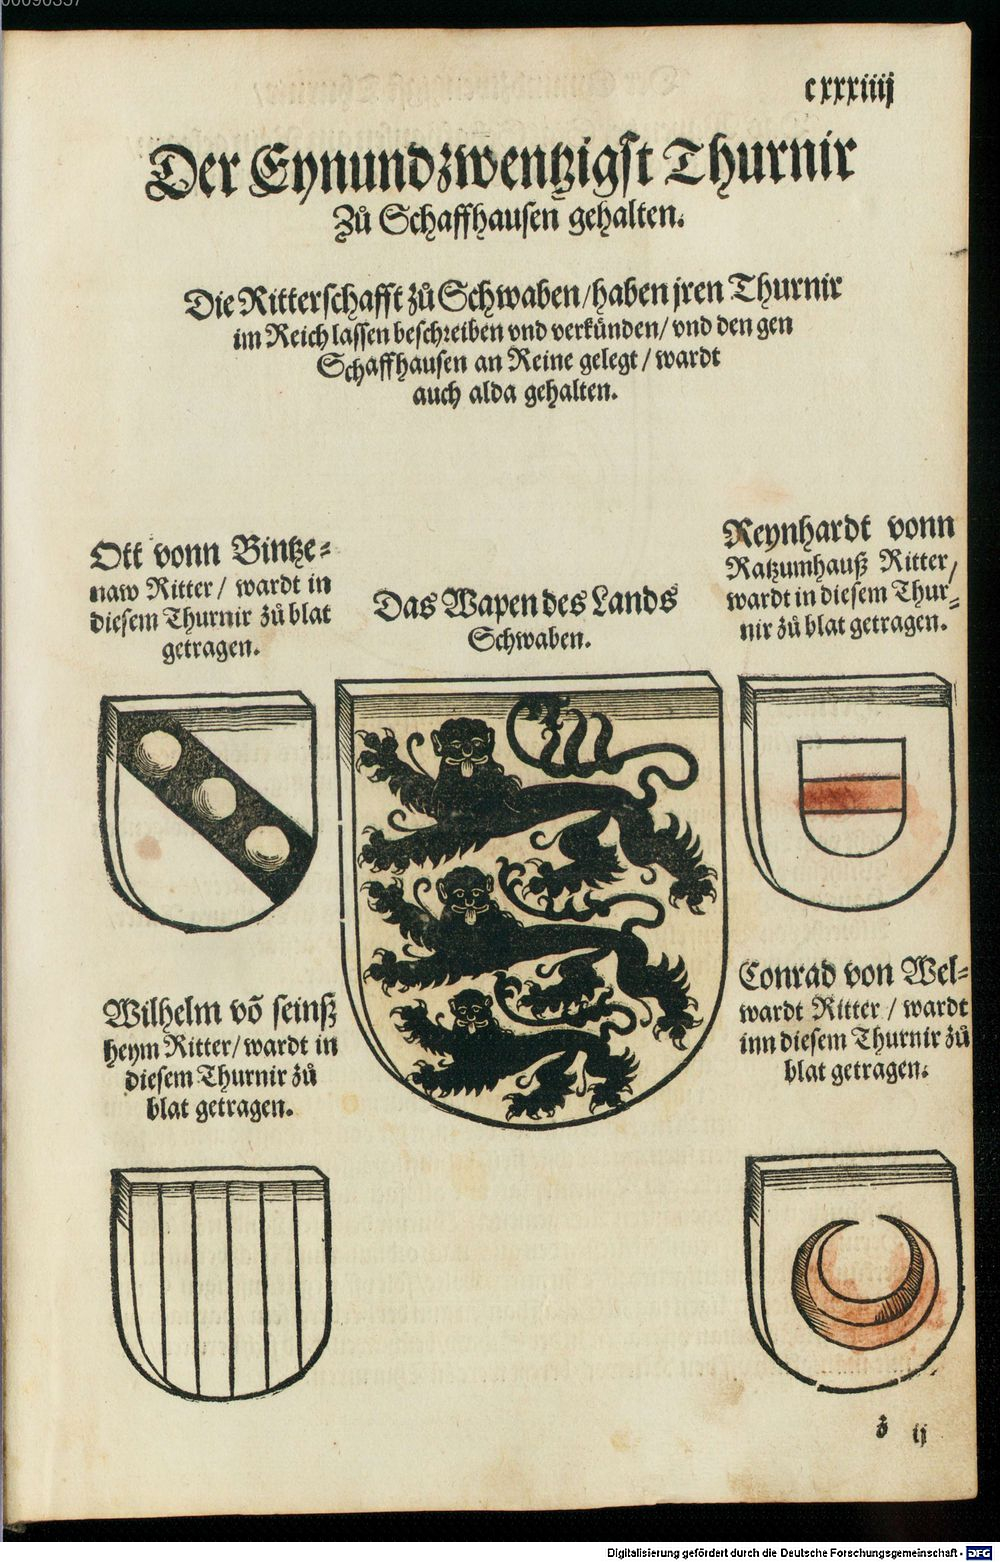 cxxxiiij
Der Eynundzwentzigst Thurnir
Zů Schaffhausen gehalten.
Die Ritterschafft zů Schwaben/haben jren Thurnir
im Reich lassen beschreiben vnd verkünden/ vnd den gen
Schaffhausen an Reine gelegt/ wardt
auch alda gehalten.
Ott vonn Bintze-
naw Ritter/ wardt in
diesem Thurnir zů blat
getragen.
Das Wapen des Lands
Schwaben.
Reynhardt vonn
Ratzumhauß Ritter/
wardt in diesem Thur-
nir zů blat getragen.
Wilhelm võ seinß
heym Ritter/ wardt in
diesem Thurnir zů
blat getragen.
Conrad von Wel-
wardt Ritter/ wardt
inn diesem Thurnir zů
blat getragen.
z ij
Digitalisierung gefördert durch die Deutsche Forschungsgemeinschaft - DFG